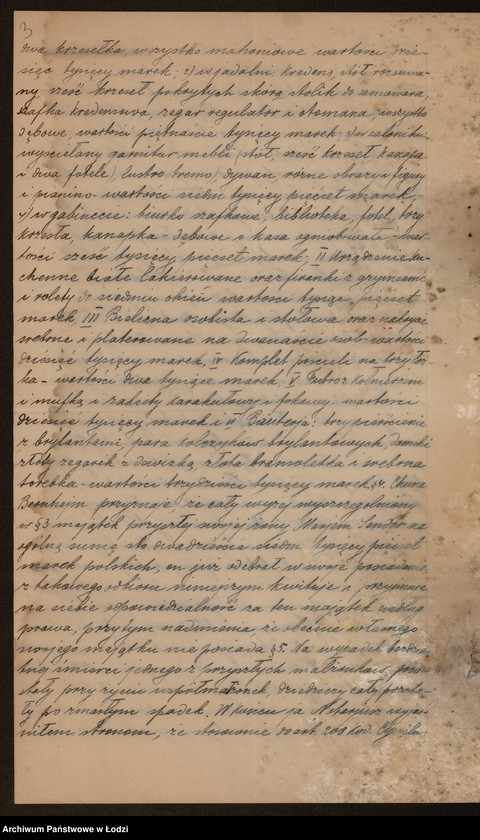 3
dwa krzesełka, wszystko mahoniowe wartości dzie-
sięć tysięcy marek; 2) w jadalni: kredens, stół rozsuwa-
ny, sześć krzeseł pokrytych skórą, stolik do samowara,
szafka kredensowa, zegar regulator i otomana, wszystko
dębowe, wartości piętnaście tysięcy marek; 3) w saloniku:
wyściełany garnitur mebli (stół, sześć krzeseł, kanapa
i dwa fotele), lustro tremo, dywan, różne obrazy i figury
i pianino - wartości siedm tysięcy pięćset marek,
4) w gabinecie: biurko szafkowe, biblioteka, fotel, trzy
krzesła, kanapka - dębowe i kasa ogniotrwała - war-
tości sześć tysięcy pięćset marek; II Urządzenie ku-
chenne białe lakierowane oraz firanki z gzymsami
i rolety do siedmiu okien wartości tysiąc pięćset
marek, III Bielizna osobista i stołowa oraz nakrycie
srebrne i platerowane na dwanaście osób wartości
dziesięć tysięcy marek, IV Komplet pościeli na trzy łóż-
ka - wartości dwa tysiące marek, V Futro z kołnierzem
i mufką i żakiety karakułowy i fokowy: wartości
dziesięć tysięcy marek i VI Biżuterja: trzy pierścienie
z brylantami, para kolczyków brylantowych, damski
złoty zegarek z dewizką, złota bransoletka i srebrna
torebka - wartości trzydzieści tysięcy marek. § 4. Chuna
Bernhejm przyznaje, że cały wyżej wyszczególniony
w § 3 majątek przyszłej swojej żony, Marjem Sender na
ogólną sumę sto dwadzieścia siedm tysięcy pięćset
marek polskich, on już odebrał w swoje posiadanie
z takowego odbioru niniejszym kwituje i przyjmuje
na siebie odpowiedzialność za ten majątek według
prawa, przytym nadmienia że obecnie własnego
swojego majątku nie posiada. § 5. Na wypadek bezdzie-
tnej śmierci jednego z przyszłych małżonków, pozo-
stały przy życiu współmałżonek, dziedziczy cały pozosta-
ły po zmarłym spadek. W końcu ja Notarjusz wyja-
śniłem stronom, że stosownie do art. 208 Kod. Cywiln.
Archiwum Państwowe w Łodzi